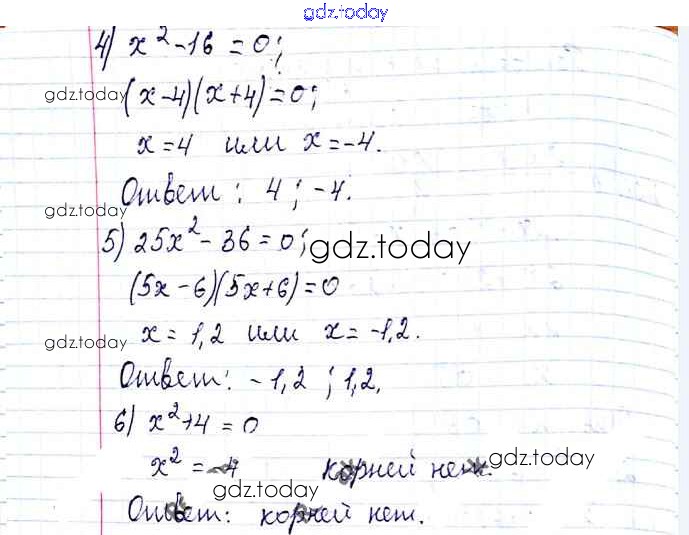 gdz.today
4) x² - 16 = 0;
gdz.today (x-4)(x+4)=0;
x = 4 или x = -4.
Ответ: 4; -4.
gdz.today
5) 25x² - 36 = 0; gdz.today
(5x-6)(5x+6)=0
gdz.today x = 1,2 или x = -1,2.
Ответ: -1,2; 1,2.
6) x²+4 = 0
x² = -4 корней нет. gdz.today
gdz.today
Ответ: корней нет.